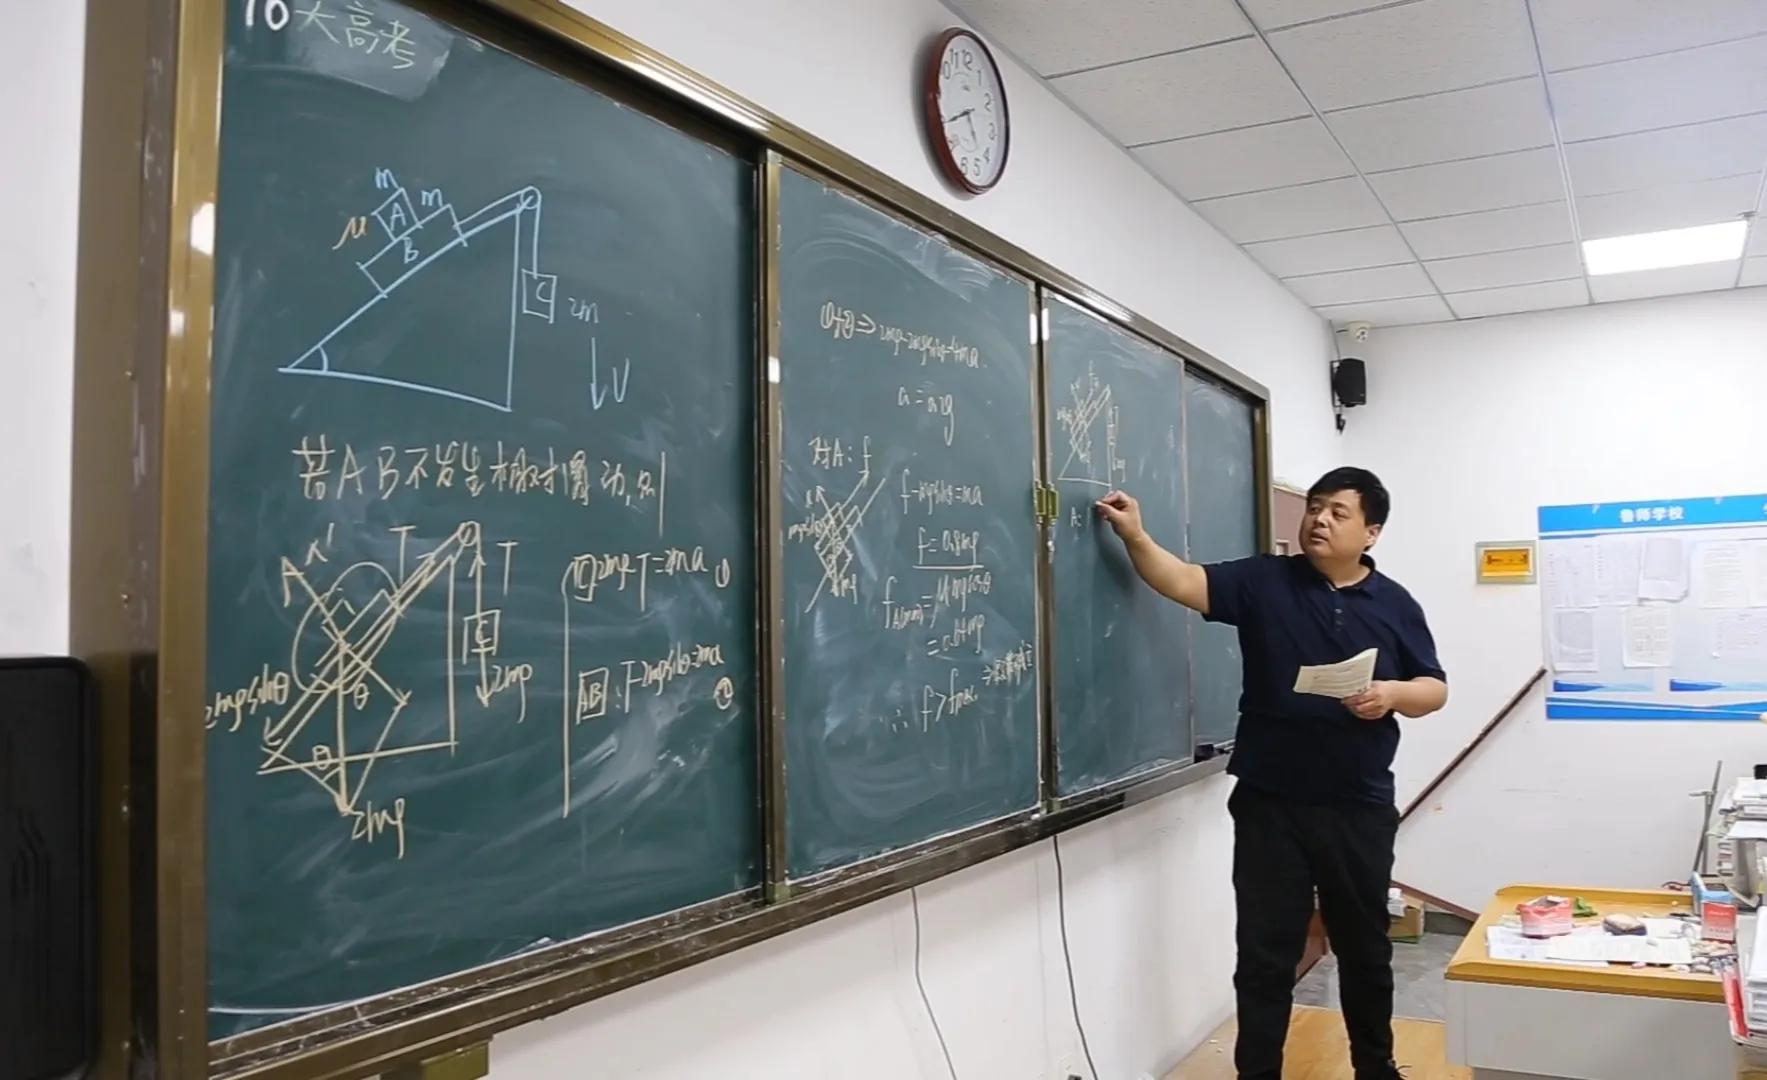 10大高考
m
m
μ
A
B
C
2m
V
若AB不发生相对滑动,则
N'
T
T
C
2mg
2mgsinθ
θ
θ
2mg
C: 2mg-T=2ma ①
AB: T-2mgsinθ=2ma ②
①+②⇒2mg-2mgsinθ=4ma
a=0.2g
对A: f
f-mgsinθ=ma
f=0.8mg
mg
fA(max)=μmgcosθ
=0.64mg
∴ f>fmax
A:
12
1
2
3
4
5
6
11
鲁师学校